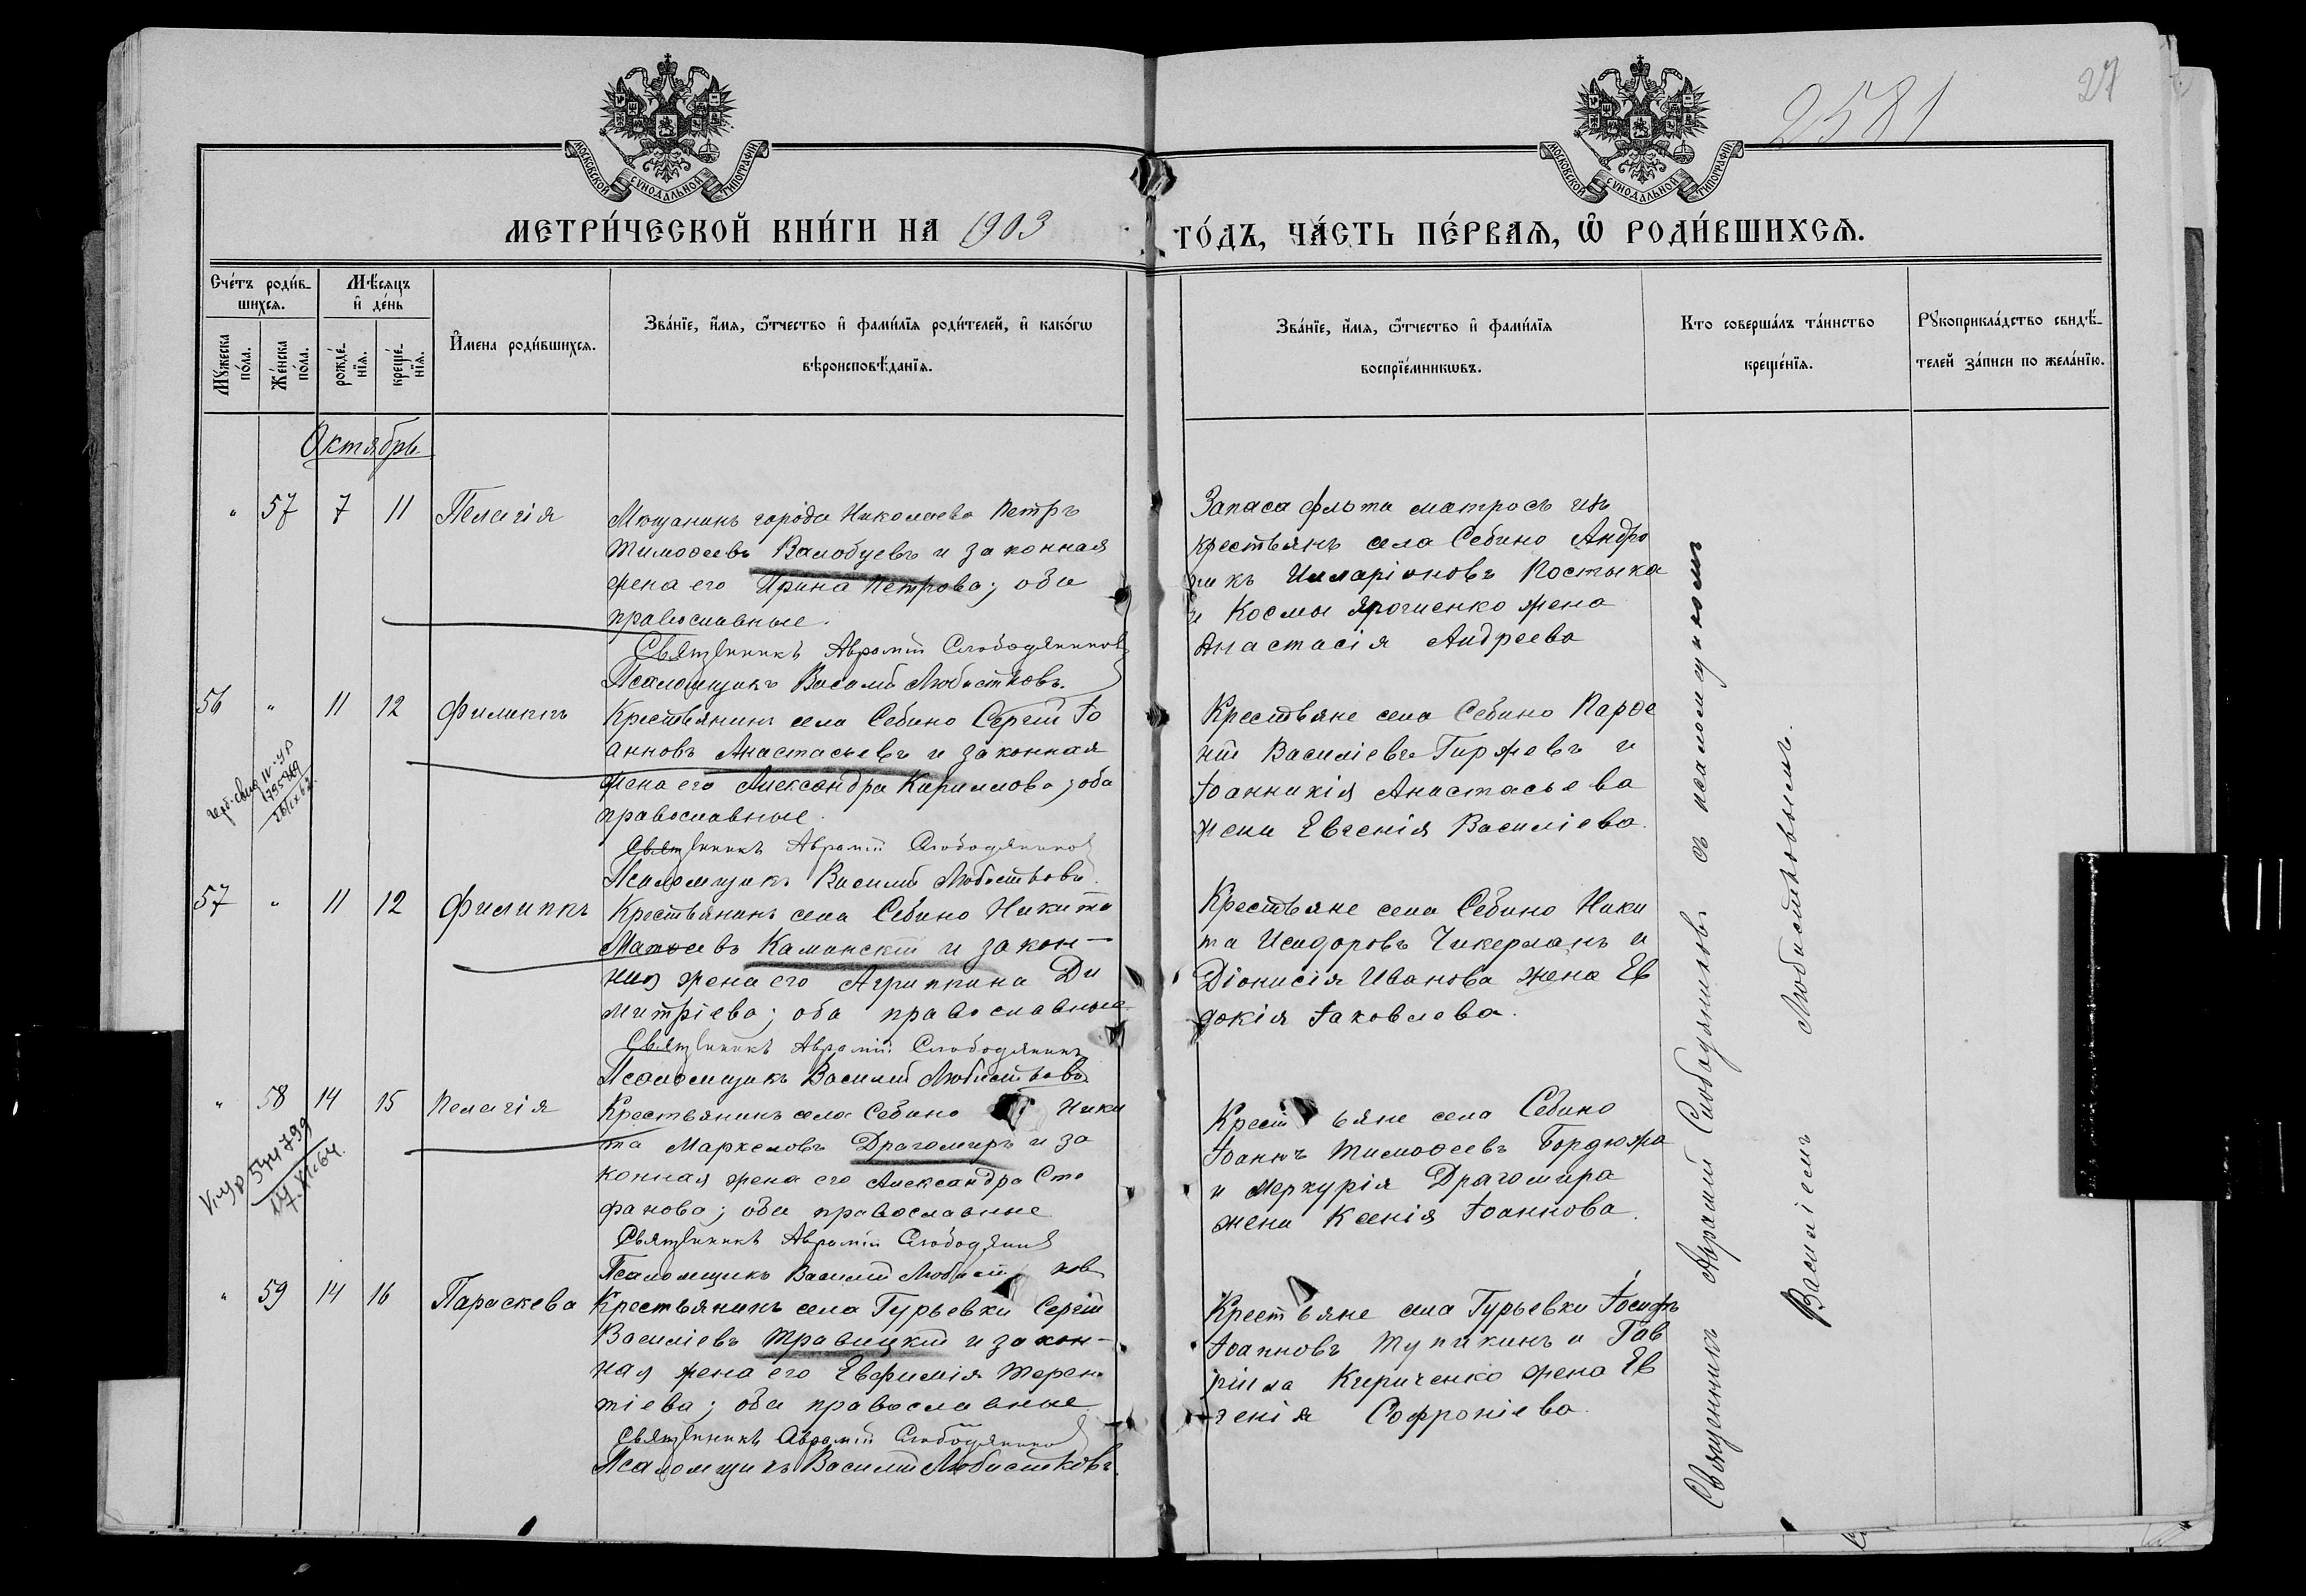 2581
27
МОСКОВСКОЙ СѴНОДАЛЬНОЙ ТИПОГРАФІИ
МОСКОВСКОЙ СѴНОДАЛЬНОЙ ТИПОГРАФІИ
МЕТРИ́ЧЕСКОЙ КНИ́ГИ НА 1903
ГО́ДЪ, ЧА́СТЬ ПЕ́РВАѦ, Ѡ҆ РОДИ́ВШИХСѦ.
Сче́тъ роди́в-
шихсѧ.
Мѣ́сѧцъ
и҆ де́нь
Мꙋ́жеска по́ла.
Же́нска по́ла.
рожде́-
нїѧ.
креще́-
нїѧ.
И҆́мена роди́вшихсѧ.
Зва́нїе, и҆́мѧ, ѻ҆́тчество и҆ фами́лїѧ роди́телей, и҆ како́гѡ
вѣроисповѣ́данїѧ.
Зва́нїе, и҆́мѧ, ѻ҆́тчество и҆ фами́лїѧ
воспрїе́мникѡвъ.
Кто соверша́лъ та́инство
креще́нїѧ.
Рꙋкоприкла́дство свидѣ́-
телей за́писи по жела́нїю.
Октябрь
" 57 7 11 Пелагія
Мѣщанинъ города Николаева Петръ
Тимоѳеевъ Валобуевъ и законная
жена его Ирина Петрова; оба
православные.
Священникъ Аврамій Слободяниковъ
Псаломщикъ Василій Любистковъ.
Запаса флота матросъ изъ
крестьянъ села Себино Андро
никъ Иларіоновъ Костыка
и Космы Ярошенко жена
Анастасія Андреева
56 " 11 12 Филиппъ
Крестьянинъ села Себино Сергій Іо
анновъ Анастасьевъ и законная
жена его Александра Кириллова; оба
православные.
Священникъ Аврамій Слободяников
Псаломщикъ Василій Любистковъ
Крестьяне села Себино Парѳе
ній Василіевъ Гиржевъ и
Іоанникія Анастасьева
жена Евгенія Василіева.
57 " 11 12 Филиппъ
Крестьянинъ села Себино Никита
Матѳеевъ Каминскій и закон-
ная жена его Агриппина Ди
митріева; оба православные
Священникъ Аврамій Слободяникъ
Псаломщикъ Василій Любистковъ
Крестьяне села Себино Ники
та Исидоровъ Чикерланъ и
Діонисія Иванова жена Ев
докія Іаковлева.
" 58 14 15 Пелагія
V-УР 544799
Крестьянинъ села Себино Ники
та Маркеловъ Драгомиръ и за
конная жена его Александра Сте
фанова; оба православные
Священникъ Аврамій Слободяник
Псаломщикъ Василій Любистков
Крестьяне села Себино
Іоаннъ Тимоѳеевъ Бордюжа
и Меркурія Драгомира
жена Ксенія Іоаннова.
" 59 14 16 Параскева
Крестьянинъ села Гурьевки Сергій
Василіевъ Травицкій и закон-
ная жена его Евфимія Терен
тіева; оба православные
Священникъ Аврамій Слободяников
Псаломщикъ Василій Любистковъ.
Крестьяне села Гурьевки Іосифъ
Іоанновъ Тупикинъ и Гав
ріила Кириченко жена Ев
генія Софроніева.
Священникъ Аврамій Слободяниковъ съ псаломщикомъ
Василіемъ Любистковымъ.